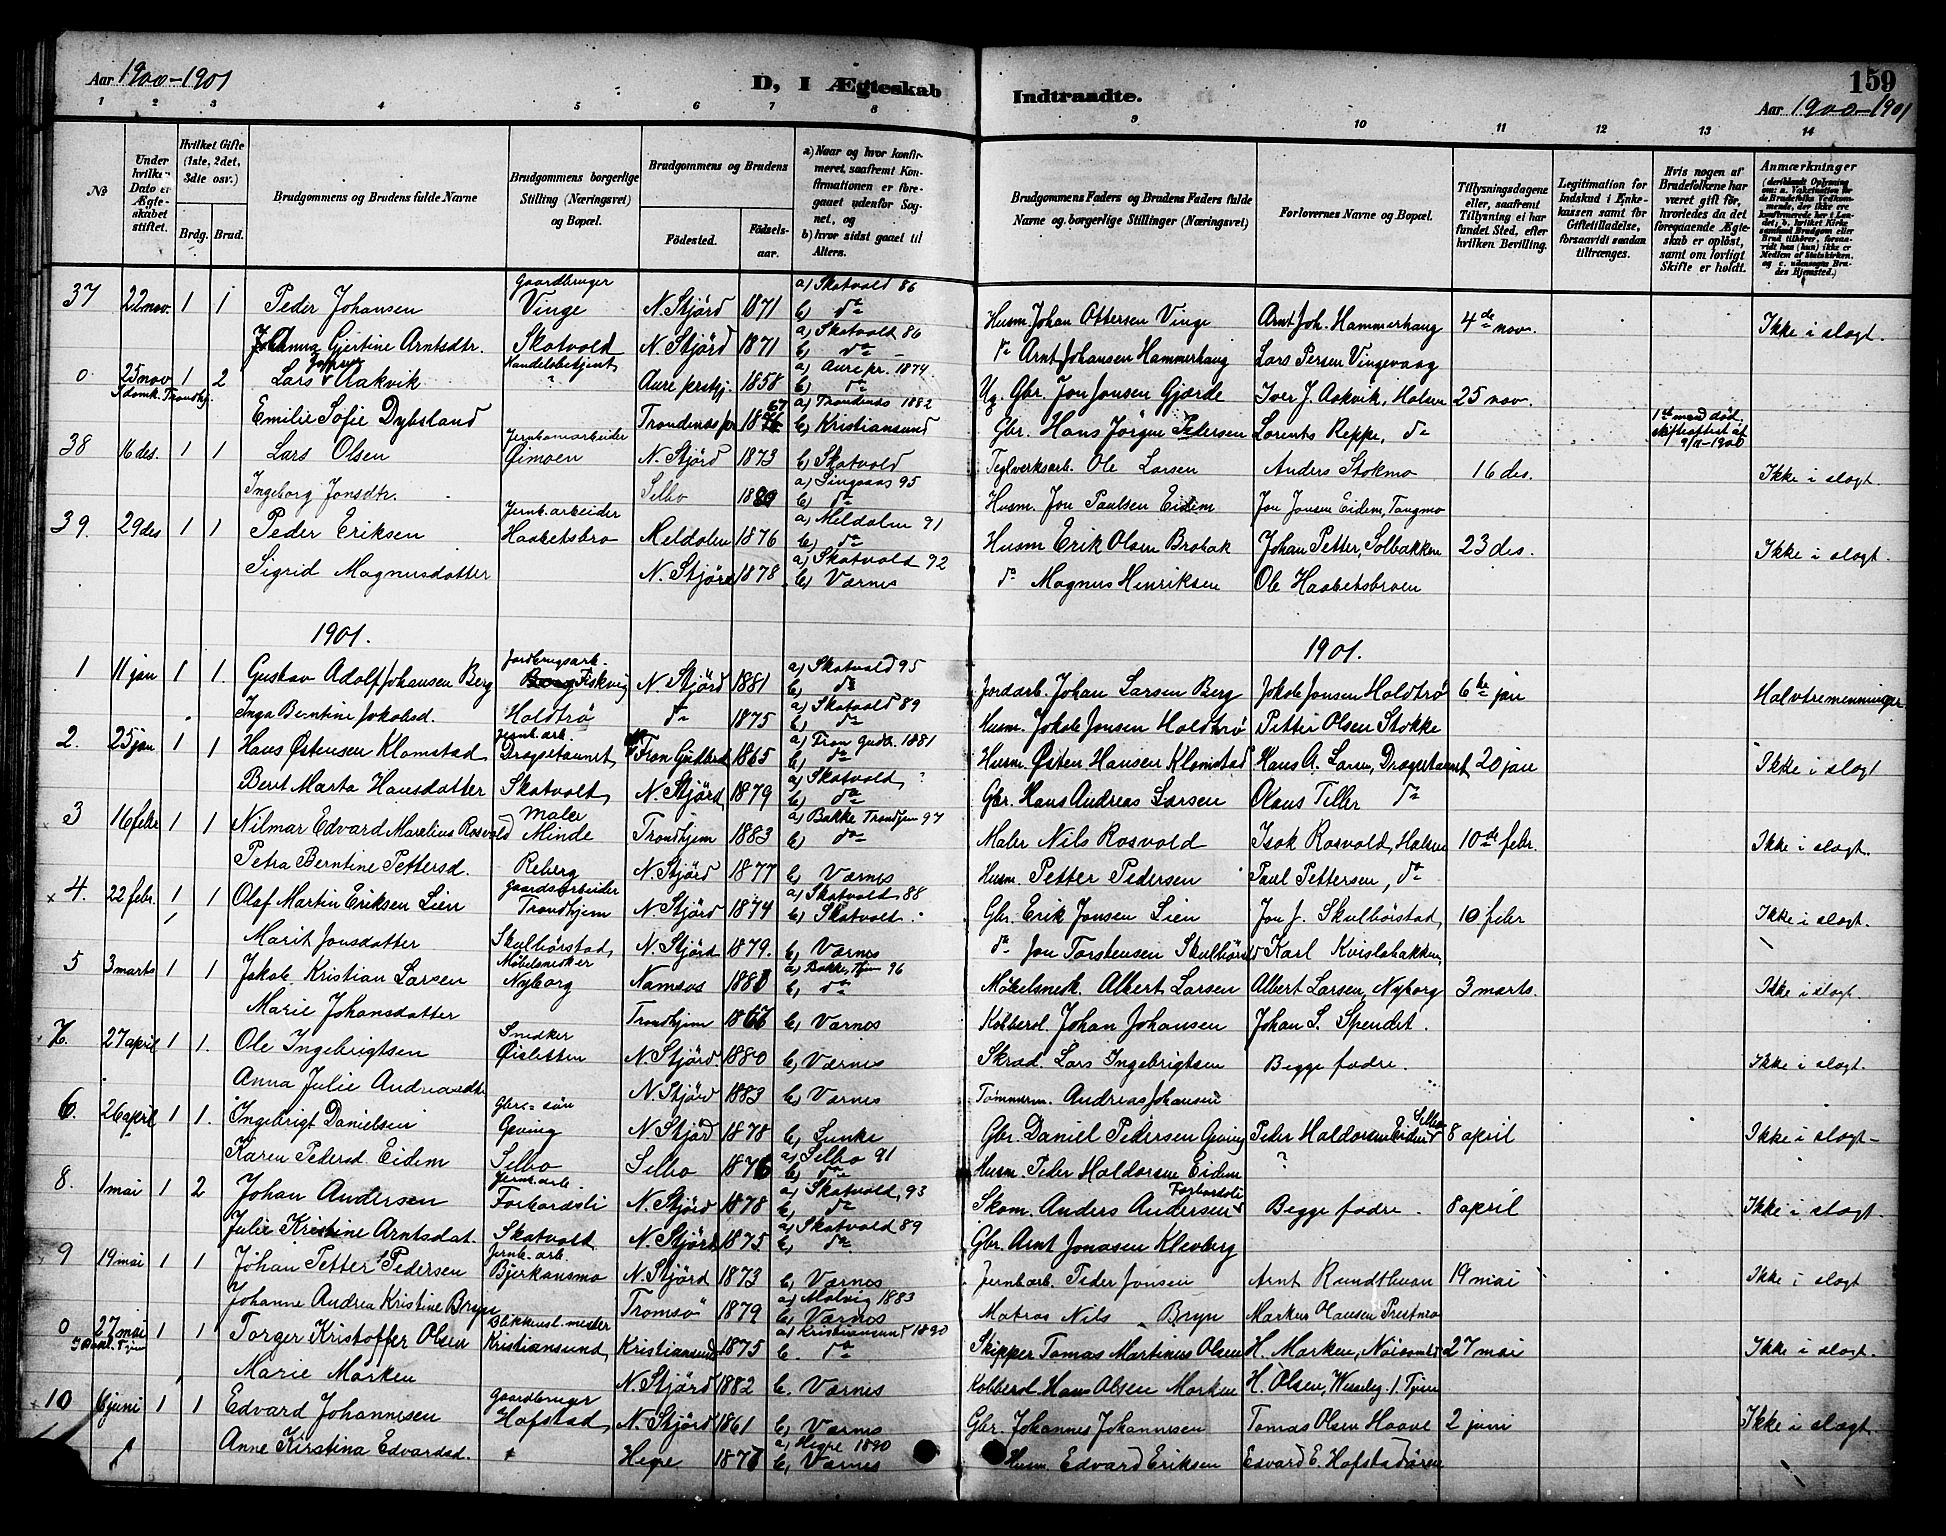 Aar 1900-1901 D, I Ægteskab Indtraadte. 159
Aar 1900-1901
1 2 3 4 5 6 7 8 9 10 11 12 13 14
No
Under hvilken Dato er Ægteskabet stiftet.
Hvilket Gifte (1ste, 2det, 3die osv.)
Brdg. Brud.
Brudgommens og Brudens fulde Navne
Brudgommens borgerlige Stilling (Næringsvei) og Bopæl.
Brudgommens og Brudens
Födested. Födsels-aar.
a) Naar og hvor konfirmeret, saafremt Konfirmationen er foregaaet udenfor Sognet, og b) hvor sidst gaaet til Alters.
Brudgommens Faders og Brudens Faders fulde Navne og borgerlige Stillinger (Næringsvei)
Forlovernes Navne og Bopæl.
Tillysningsdagene eller, saafremt Tillysning ei har fundet Sted, efter hvilken Bevilling.
Legitimation for Indskud i Enkekassen samt for Giftetilladelse, forsaavidt saadan tiltrænges.
Hvis nogen af Brudefolkene har været gift før, hvorledes da det foregaaende Ægteskab er opløst, samt om lovligt Skifte er holdt.
Anmærkninger
37 22 nov. 1 1 Peder Johansen Gaardbruger Vinge N. Stjörd 1871 a) Skatvold 86 b) do Husm. Johan Ottersen Vinge Arnt Joh. Hammerhaug 4de nov. Ikke i slægt.
Johanna Gjertine Arntsdtr. Skatvold N. Stjörd 1871 a) Skatvold 86 b) do do Arnt Johansen Hammerhaug Lars Persen Vingevaag
0 25 nov I domk. Trondhj. 1 2 Lars Aakvik Handelsbetjent Aure prstgj. 1858 a) Aure pr. 1874 b) do Ug. Gbr. Jon Jonsen Gjærde Iver J. Aakvik, Halsen 25 nov.
Emilie Sofie Dybsland Trondenæs pr 1867 a) Trondenæs 1882 b) Kristiansund Gbr. Hans Jörgen Pedersen Lorents Reppe, do 1ste mand död skifteattest af
38 16 des. 1 1 Lars Olsen Jernbanearbeider Øimoen N. Stjörd 1873 b) Skatvold Teglverksarb. Ole Larsen Anders Stokmo 16 des. Ikke i slægt.
Ingeborg Jonsdtr. Selbo 1880 a) Singsaas 95 b) do Husm. Jon Paulsen Eidem Jon Jonsen Eidem, Tangmo
39. 29 des 1 1 Peder Eriksen Jernb.arbeider Haabetsbro Meldalen 1876 a) Meldalen 91 b) do Husm Erik Olsen Brobak Johan Petter Solbakken 23 des. Ikke i slægt.
Sigrid Magnusdatter N. Stjörd 1878 a) Skatvold 92 b) Værnes do Magnus Henriksen Ole Haabetsbroen
1901. 1901.
1 11 jan 1 1 Gustav Adolf Johansen Berg Jordbrugsarb. Fiskvig N. Stjörd 1881 a) Skatvold 95 b) do Jordarb. Johan Larsen Berg Jakob Jonsen Holdtrø 6te jan Halvtremenninger
Inga Berntine Jakobsd. Holdtrø do 1875 a) Skatvold 89 b) do Husm. Jakob Jonsen Holdtrø Petter Olsen Stokke
2. 25 jan 1 1 Hans Østensen Klomstad Jernb. arb. Dragstaunet, Fron Gudbrd 1865 a) Fron Gudbr. 1881 b) do Husm. Østen Hansen Klomstad Hans A. Larsen, Dragstaunet 20 jan Ikke i slægt
Berit Marta Hansdatter Skatvold, N. Stjörd 1879 a) Skatvold, b) do Gbr. Hans Andreas Larsen Olaus Tiller do
3 16 febr 1 1 Nilmar Edvard Marelius Rosvold Maler Minde Trondhjem 1883 a) Bakke Trondhjem 97 b) do Maler Nils Rosvold Isak Rosvold, Halsen 10de febr. Ikke i slægt.
Petra Berntine Pettersd. Reberg N. Stjörd 1877 b) Værnes Husm. Petter Pedersen Paul Pettersen, do
4. 22 febr. 1 1 Olaf Martin Eriksen Lien Gaardsarbeider Trondhjem N. Stjörd 1874 a) Skatvold 88 b) Skatvold Gbr. Erik Jonsen Lien Jon J. Skulbörstad, 10 febr Ikke i slægt.
Marit Jonsdatter Skulbörstad, N. Stjörd 1879. b) Værnes do Jon Torstensen Skulbörstad Karl Kvislabakken,
5 3 marts 1 1 Jakob Kristian Larsen Møbelsnedker Nyborg Namsos 1881 a) Bakke, Thjem 96 b) do Møbelsnedk. Albert Larsen Albert Larsen, Nyborg 3 marts. Ikke i slægt.
Marie Johansdatter Trondhjem b) Værnes Kobbersl. Johan Johansen Johan L. Spendet.
7. 27 april 1 1. Ole Ingebrigtsen Snedker Øisletten N. Stjörd 1880 b) Værnes Skræd. Lars Ingebrigtsen Begge fædre. Ikke i slægt.
Anna Julie Andreasdtr N. Stjörd 1883 b) Værnes Tømmerm. Andreas Johansen
6. 26 april 1 1. Ingebrigt Danielsen Gbrs-søn Geving N. Stjörd 1878 b) Lånke Gbr. Daniel Pedersen Geving Peder Haldorsen Eidem Selbu 8 april Ikke i slægt-
Karen Pedersd. Eidem Selbo Selbo 1876 a) Selbo 91 b) do Husm. Peder Haldorsen Eidem ?
8. 1 mai 1 2 Johan Andersen Jernb. arb. Forbordsli N. Stjörd 1878 a) Skatvold, 93 b) do Skom. Anders Andersen Forbordsli Begge fædre. 8 april Ikke i slægt.
Julie Kristine Arntsdat. Skatvold N. Stjörd 1875 a) Skatvold 89 b) do Gbr. Arnt Jonasen Klevberg
9 19 mai 1 1 Johan Petter Pedersen Jernb. arb Bjerkansmo N. Stjörd 1873 b) Værnes Jernb.arb. Peder Jonsen Arnt Rundthuan 19 mai Ikke i slægt
Johanne Andrea Kristine Bryn Tromsö 1879 a) Malvig 1883 b) Værnes Matros Nils Bryn Markus Hansen Prestmo
0 27 mai 1 1 Torger Kristoffer Olsen Blikkensl. mester Kristiansund, Kristiansund 1875 a) Kristiansund 1890 b. do Skipper Tomas Martinus Olsen H. Marken, Nörsund 27 mai Ikke i slægt.
Marie Marken N. Stjörd 1882 b. Værnes Kobbersl. Hans Olsen Marken H. Olsen, Wesselsg. 1. Thjem
10 6 juni 1 1 Edvard Johannesen Gaardbruger Hofstad N. Stjörd 1861 b) Værnes Gbr. Johannes Johannesen Tomas Olsen Haave 2 juni Ikke i slægt.
Anne Kirstina Edvardsd. Hegre 1877 a) Hegre 1890 b) Værnes Husm. Edvard Eriksen Edvard E. Hofstadören